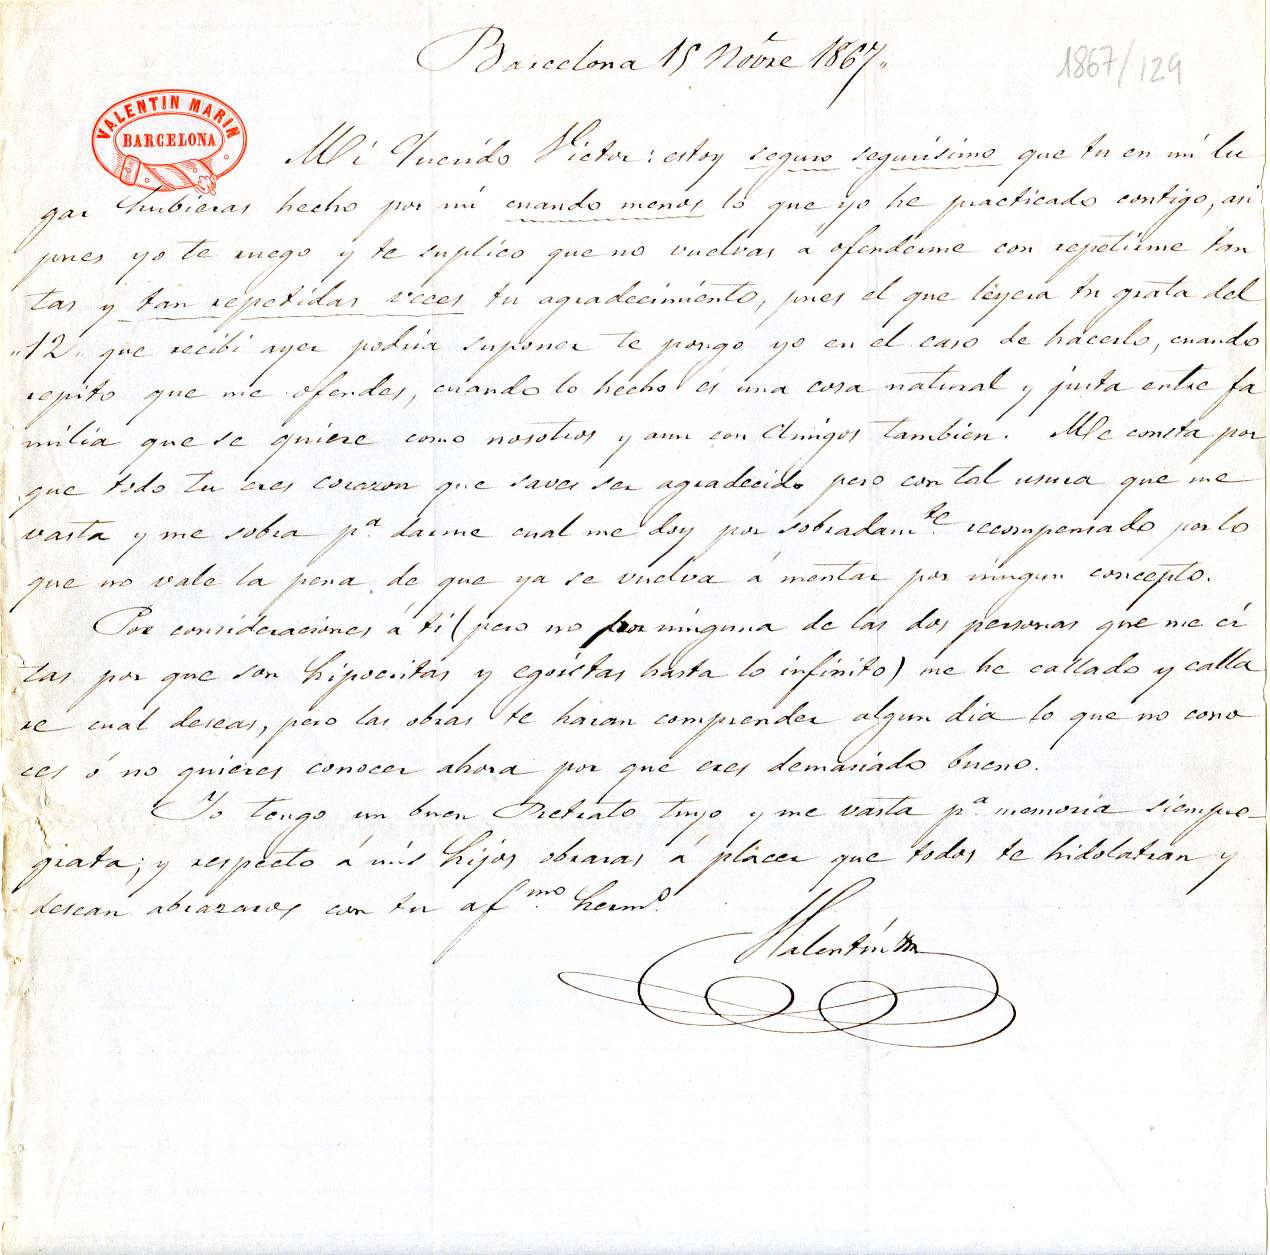 Barcelona 15 Nobre 1867„
1867/129
VALENTIN MARIN
BARCELONA
Mi Querido Victor: estoy seguro segurisimo que tu en mi lu
gar hubieras hecho por mi cuando menos lo que yo he practicado contigo, asi
pues yo te ruego y te suplico que no vuelvas a ofenderme con repetirme tan
tas y tan repetidas veces tu agradecimiento, pues el que leyera tu grata del
„12„ que recibi ayer podria suponer te pongo yo en el caso de hacerlo, cuando
repito que me ofendes, cuando lo hecho es una cosa natural y justa entre fa
milia que se quiere como nosotros y aun con Amigos tambien. Me consta por
que todo tu eres corazon que saves ser agradecido pero con tal usura que me
vasta y me sobra pª. darme cual me doy por sobradamte. recompensado por lo
que no vale la pena de que ya se vuelva á mentar por ningun concepto.
Por consideraciones á ti (pero no por ninguna de las dos personas que me ci
tas por que son hipocritas y egoistas hasta lo infinito) me he callado y calla
re cual deseas, pero las obras te haran comprender algun dia lo que no cono
ces ó no quieres conocer ahora por que eres demasiado bueno.
Yo tengo un buen Retrato tuyo y me vasta pª. memoria siempre
grata; y respecto á mis hijos obraras á placer que todos te hidolatran y
desean abrazaros con tu afmo. hermº.
Valentin